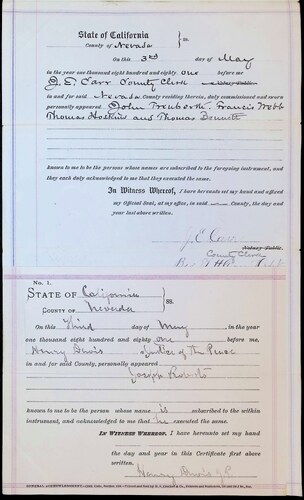 State of California
County of Nevada } ss.
On this 3rd day of May
in the year one thousand eight hundred and eighty one before me
J. E. Carr County Clerk Notary Public
in and for said Nevada County residing therein, duly commissioned and sworn
personally appeared John Trenberth, Francis Webb
Thomas Hoskins and Thomas Bennett
known to me to be the persons whose names are subscribed to the foregoing instrument, and
they each duly acknowledged to me that they executed the same.
In Witness Whereof, I have hereunto set my hand and affixed
my Official Seal, at my office, in said County, the day and
year last above written.
J. E. Carr
Notary Public
County Clerk
No. 1.
STATE OF California
COUNTY OF Nevada } ss.
On this Third day of May in the year
one thousand eight hundred and eighty one before me,
Henry Davis Justice of the Peace
in and for said County, personally appeared
Joseph Roberts
known to me to be the person whose name is subscribed to the within
instrument, and acknowledged to me that he executed the same.
IN WITNESS WHEREOF, I have hereunto set my hand
the day and year in this Certificate first above
written.
Henry Davis J.P.
GENERAL ACKNOWLEDGMENT